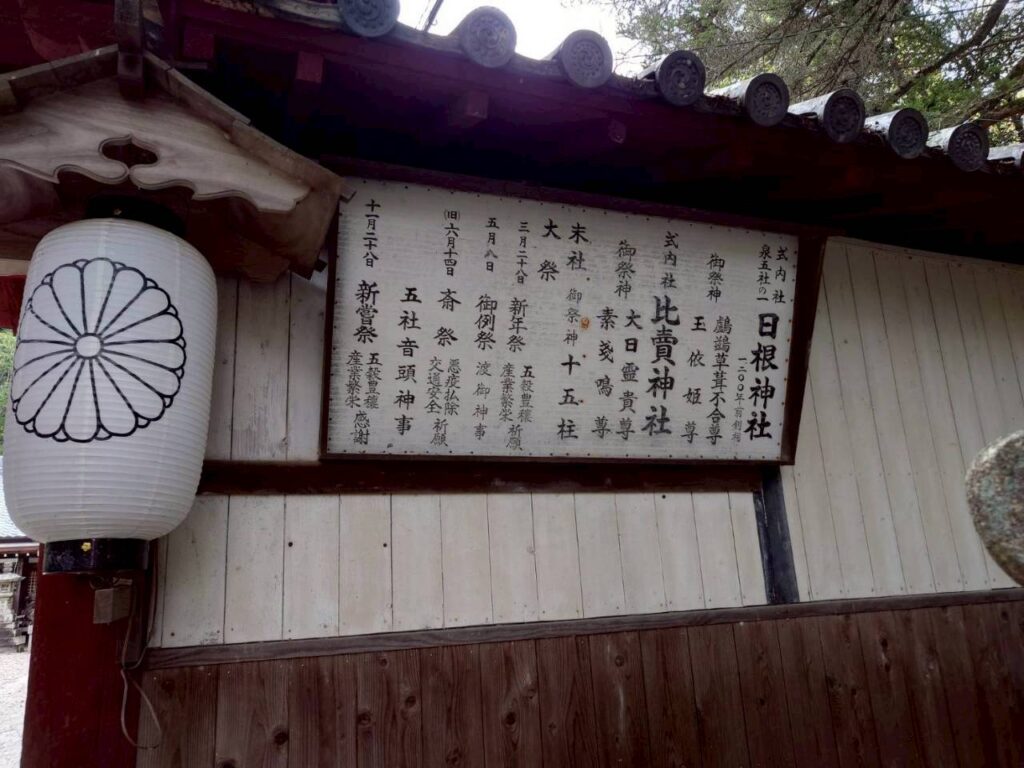 式内社
泉五社の一
日根神社
一二〇〇年前創祀
御祭神
鸕鷀草葺不合尊
玉依姫尊
式内社
比賣神社
御祭神
大日靈貴尊
素戔鳴尊
末社 御祭神 十五柱
大祭
三月二十八日 新年祭 五穀豊穣 産業繁栄 祈願
五月八日 御例祭 渡御神事
(旧)六月十四日 斎祭 悪疫払除 交通安全 祈願
五社音頭神事
十一月二十八日 新嘗祭 五穀豊穣 産業繁栄 感謝